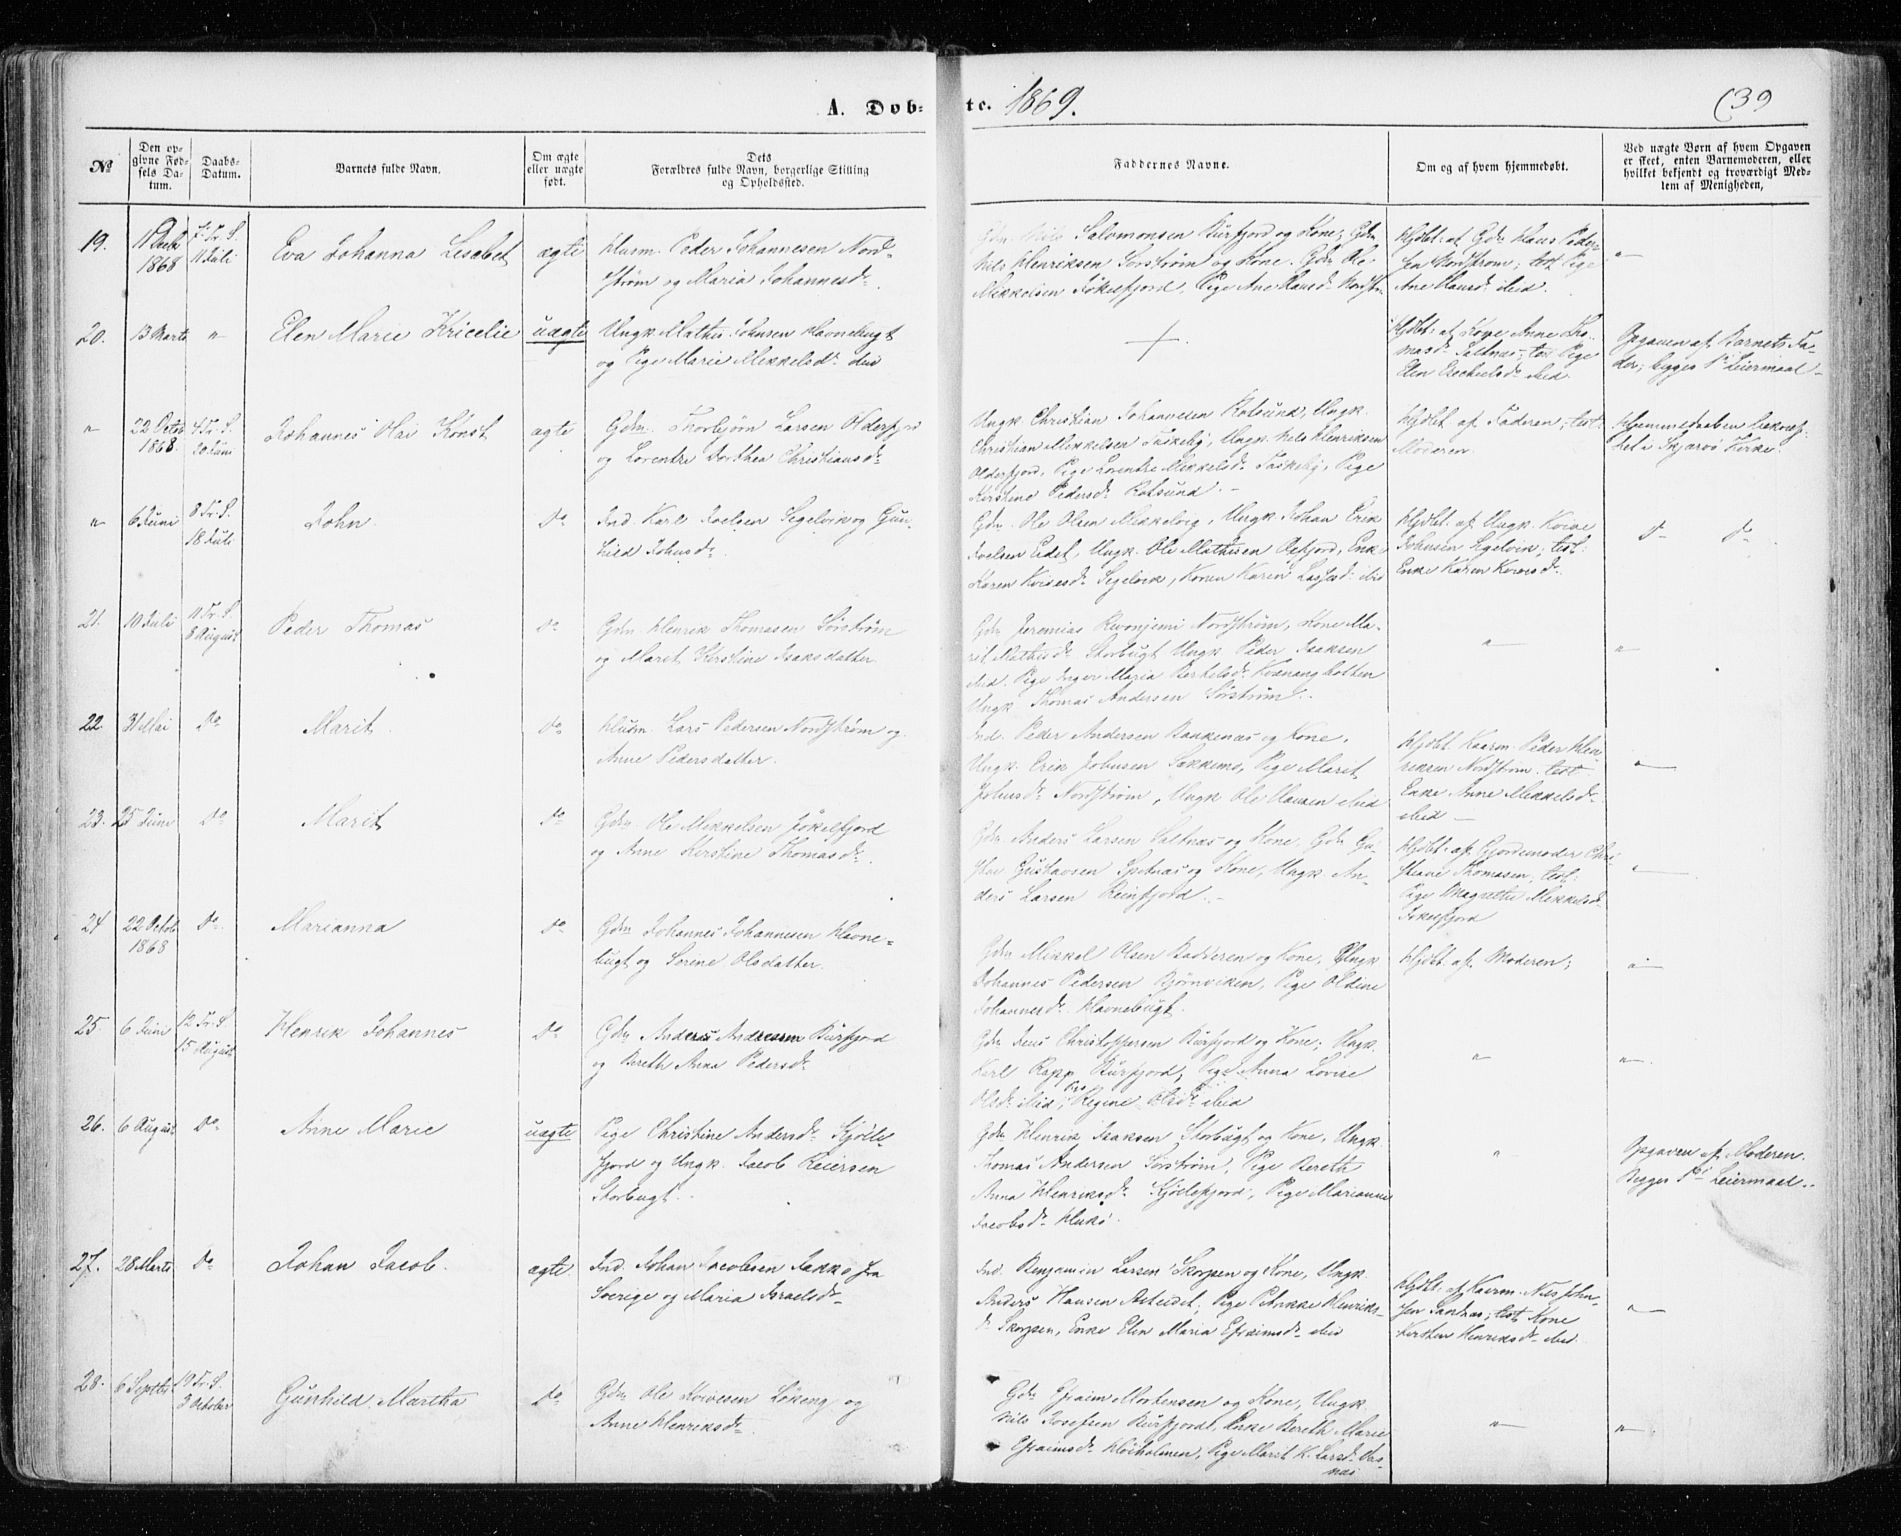 A. Døb- te. 1869. 139
No
Den opgivne Fødsels Datum.
Daabs-Datum.
Barnets fulde Navn.
Om ægte eller uægte født.
Dets Forældres fulde Navn, borgerlige Stilling og Opholdssted.
Faddernes Navne.
Om og af hvem hjemmedøbt.
Ved uægte Børn af hvem Opgaven er skeet, enten Barnemoderen, eller hvilket bekjendt og troværdigt Medlem af Menigheden,
19. 11 Decbr 1868 7. Tr. S. 11 Juli Eva Johanna Lisabet ægte
Husm. Peder Johannesen Nord-
strøm og Maria Johannesdr.
Salomonsen Burfjord og Kone; Gdm.
Nils Henriksen Sørstrøm og Kone. Gdm Ole
Mikkelsen Jøkelfjord, Pige Ane Hansdr. Nordstr.
Hjdbt. af Gdm Hans Peder-
sen Nordstrøm; test Pige
Ane Hansdr. ibid.
"
20. 13 Marts " Elen Marie Kricelie uægte
Ungk. Mathis Johnsen Havnebugt
og Pige Marie Mikkelsdr. ibid
+
Hjdbt. af Kone Anne Tho-
masdr. Saltnæs; test Pige
Elen Esekielsdr. ibid.
Opgaven af Barnets Fa-
der; begges 1ste Leiermaal
" 22 Octbr 1868. 4. Tr. S. 20 Juni Johannes Olai Konst ægte
Gdm. Thorbjørn Larsen Olderfjord
og Lorentze Dorthea Christiansdr.
Ungk. Christian Johannesen Rotsund, Ungk.
Christian Mikkelsen Taskeby, Ungk. Nils Henriksen
Olderfjord, Pige Lorentze Mikkelsdr. Taskeby, Pige
Kirstine Pedersdr. Rotsund.
Hjdbt af Faderen; test:
Moderen.
Hjemmedaaben bekræf-
tet i Skjervø Kirke.
" 6 Juni 8 Tr. S. 18 Juli John. Do
Ind. Karl Joelsen Segelvik og Gun-
hild Johnsdr.
Gdm. Ole Olsen Mikkelvig, Ungk. Johan Erik
Joelsen Eidet, Ungk. Ole Mathisen Oxfjord, Enke
Karen Kvivesdr. Segelvik, Konen Karen Lassesdr. ibid
Hjdbt. af Ungk. Koive
Johnsen Segelvik; test:
Enke Karen Koivesdr.
do do.
21. 10 Juli 11 Tr. S. 8 August Peder Thomas Do
Gdm. Henrik Thomasen Sørstrøm
og Maret Kirstine Isaksdatter.
Gdm Jeremias Kvonjemi Nordstrøm, Kone Ma-
rit Mathisdr. Storbugt Ungk Peder Isaksen
ibid. Pige Inger Maria Bertelsdr. Kvænangbotten
Ungk Thomas Andersen Sørstrøm.
" "
22. 31 Mai Do Marit. Do
Husm. Lars Pedersen Nordstrøm og
Anne Pedersdatter.
Ind. Peder Andersen Bakkenæs og Kone,
Ungk. Erik Johnsen Sakkemo, Pige Maret
Johnsdr. Nordstrøm, Ungk Ole Hansen ibid
Hjdbt. Kaarm. Peder Hen-
riksen Nordstrøm, test.
Enke Anne Mikkelsdr.
ibid
"
23. 25 Juni Do Marit Do
Gdm. Ole Mikkelsen Jøkelfjord
og Anne Kirstine Thomasdr.
Gdm. Anders Larsen Saltnæs og Kone. Gdm Gu-
stav Gustavsen Spitnæs og Kone, Ungk An-
ders Larsen Reinfjord.
Hjdbt. af Gjordemoder Chri-
stiane Thomasen, test:
Pige Magrethe Mikkelsdr.
Jøkelfjord
"
24. 22 Octob 1868 Do. Marianna Do
Gdm Johannes Johannesen Havne-
bugt og Serine Olsdatter.
Gdm Mikkel Olsen Badderen og Kone, Ungk
Johannes Pedersen Bjørnviken, Pige Oldine
Johannesdr. Havnebugt.
Hjdbt. af Moderen;
"
25. 6 Juni 12 Tr. S. 15 August Henrik Johannes Do
Gdm Anders Andresen Burfjord
og Bereth Anna Pedersdr.
Gdm Jens Christophersen Burfjord og Kone; Ungk.
Karl Rapp Burfjord; Pige Anna Lovise
Olsdr. ibid, Pige Regine Olsdr. ibid
" "
26. 6 August Do Anne Marie uægte
Pige Christine Andersdr. Kjølle-
fjord og Ungk. Jacob Reiersen
Storbugt.
Gdm Henrik Isaksen Storbugt og Kone, Ungk.
Thomas Andersen Sørstrøm, Pige Bereth
Anna Henriksdr. Kjøllefjord, Pige Marianne
Jacobsdr. Hukø.
"
Opgaven af Moderen.
Begges 1ste Leiermaal.
27. 28 Marts Do Johan Jacob. ægte.
Ind. Johan Jacobsen Jakko fra
Sverige og Maria Israelsdr.
Ind. Benjamin Larsen Skorpen og Kone, Ungk.
Anders Hansen Alteidet, Pige Petrikke Henriks-
dr. Skorpen, Enke Elen Maria Efraimsdr. ibid
Hjdbt. af Kaarm. Nils John-
sen Sandnæs; test Kone
Kirsten Henriksdr. ibid.
"
28. 6 Septbr 19 Tr. S. 3 October Gunhild Martha Do
Gdm Ole Koivesen Løkeng og
Anne Henriksdr.
Gdm Efraim Mortensen og Kone, Ungk
Nils Josefsen Burfjord, Enke Bereth Marie
Efraimsdr. Høiholmen, Pige Marit K. Larsdr. Als-
næs
" "